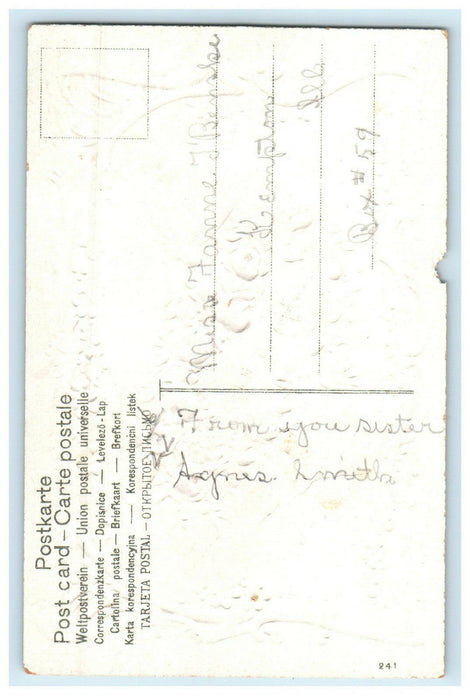 Postkarte
Post card – Carte postale
Weltpostverein — Union postale universelle
Correspondenzkarte — Dopisnice — Levelező-Lap
Cartolina postale — Briefkaart — Brefkort
Karta korespondencyjna — Korespondenční listek
TARJETA POSTAL – ОТКРЫТОЕ ПИСЬМО
Miss Fannie
Kempton
Ill
Box # 59
From you sister
Agnes
241